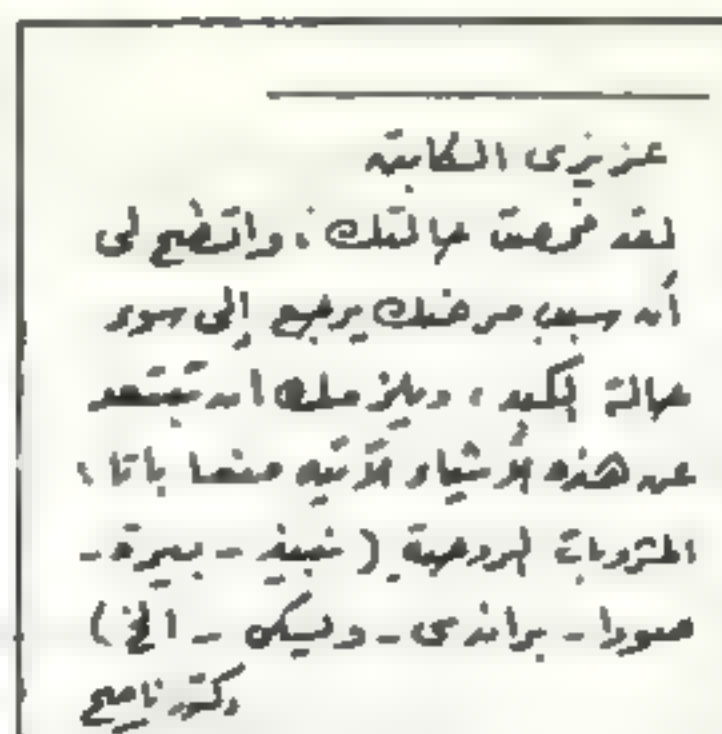 عزيزى الكابتن
لقد فحصت حالتك ، واتضح لى
أن سبب مرضك يرجع إلى سوء
حالة الكبد ، ويلزمك أن تبتعد
عن هذه الأشياء الآتيه منعا باتا ،
المشروبات الروحية ( نبيذ - بيرة -
صودا - براندى - ويسكى - الخ )
دكتور ناصح